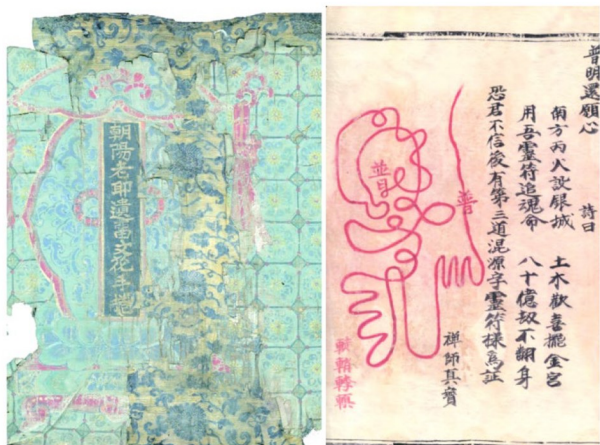 朝陽老耶遺畱文花手捲
普明還願心
詩曰
南方丙火設銀城 土木歡喜擺金宮
用吾靈符追魂命 八十億劫不翻身
恐君不信後有第三道混源字靈符樣爲証
禪師真寶
普
普